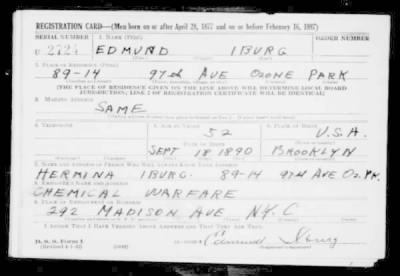 REGISTRATION CARD—(Men born on or after April 28, 1877 and on or before February 16, 1897)
SERIAL NUMBER 1. NAME (Print) ORDER NUMBER
U 2724 EDMUND IBURG
2. PLACE OF RESIDENCE (Print)
89-14 97th AVE OZONE PARK
[THE PLACE OF RESIDENCE GIVEN ON THE LINE ABOVE WILL DETERMINE LOCAL BOARD
JURISDICTION; LINE 2 OF REGISTRATION CERTIFICATE WILL BE IDENTICAL]
3. MAILING ADDRESS
SAME
4. TELEPHONE 5. AGE IN YEARS 6. PLACE OF BIRTH
52 U.S.A.
DATE OF BIRTH
SEPT 18 1890 BROOKLYN
7. NAME AND ADDRESS OF PERSON WHO WILL ALWAYS KNOW YOUR ADDRESS
HERMINA IBURG. 89-14 97TH AVE OZ.PK.
8. EMPLOYER'S NAME AND ADDRESS
CHEMICAL WARFARE
9. PLACE OF EMPLOYMENT OR BUSINESS
292 MADISON AVE N.Y.C
I AFFIRM THAT I HAVE VERIFIED ABOVE ANSWERS AND THAT THEY ARE TRUE.
D. S. S. Form 1
(Revised 4-1-42) Edmund Iburg